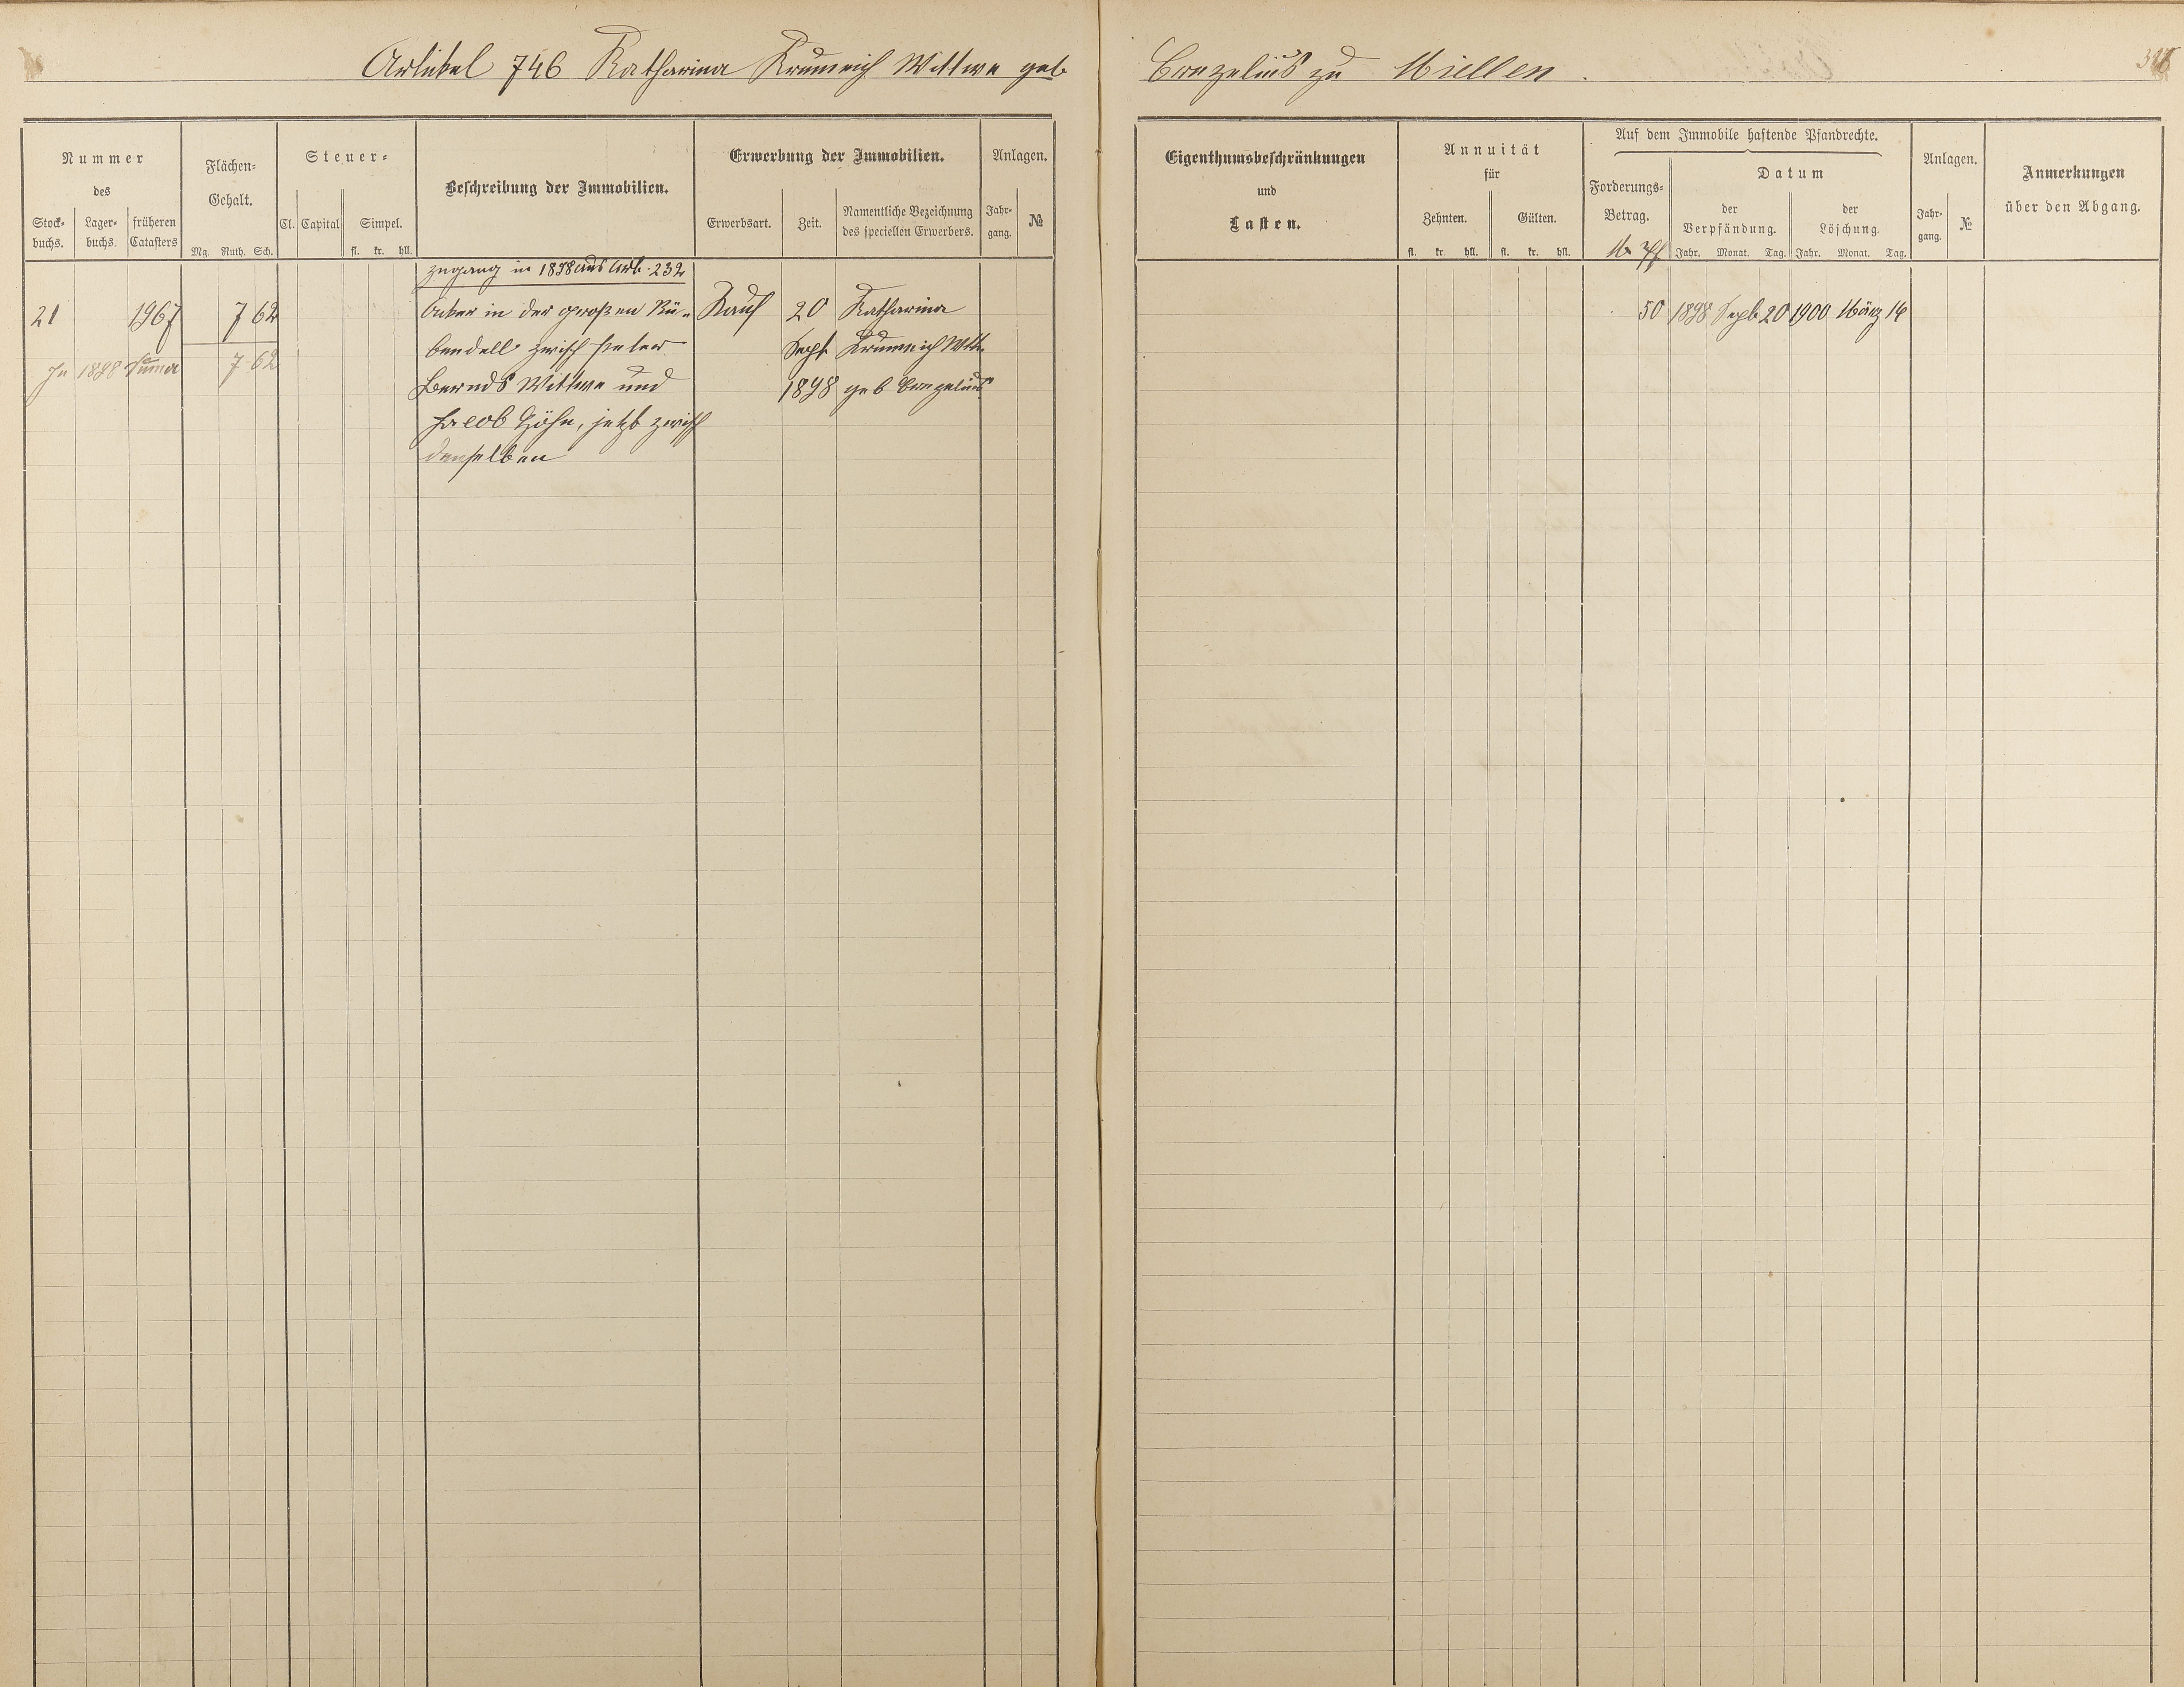 Artikel 746 Katharina Krumeich Wittwe geb
Corzelius zu Miellen.
Nummer
des
Stock-
buchs.
Lager-
buchs.
früheren
Catasters
Flächen-
Gehalt.
Mg. Ruth. Sch.
Steuer-
Cl. Capital Simpel.
fl. kr. hll.
Beschreibung der Immobilien.
Erwerbung der Immobilien.
Erwerbsart. Zeit.
Namentliche Bezeichnung
des speciellen Erwerbers.
Anlagen.
Jahr-
gang.
№
Zugang in 1898 aus Art. 232
21 1967 7 62 Acker in der großen Rü- Kauf 20 Katharina
bendell zwisch Peter Sept Krumeich Wtt.
In 1898 Suma 7 62
Bernds Wittwe und 1898 geb Corzelius
Jacob Höhn, jetzt zwisch
denselben
Eigenthumsbeschränkungen
und
Lasten.
Annuität
für
Zehnten. Gülten.
fl. kr. hll. fl. kr. hll.
Auf dem Immobile haftende Pfandrechte.
Forderungs-
Betrag.
M Pf
Datum
der
Verpfändung.
Jahr. Monat. Tag.
der
Löschung.
Jahr. Monat. Tag.
Anlagen.
Jahr-
gang.
№
Anmerkungen
über den Abgang.
50 1898 Sept 20 1900 März 14